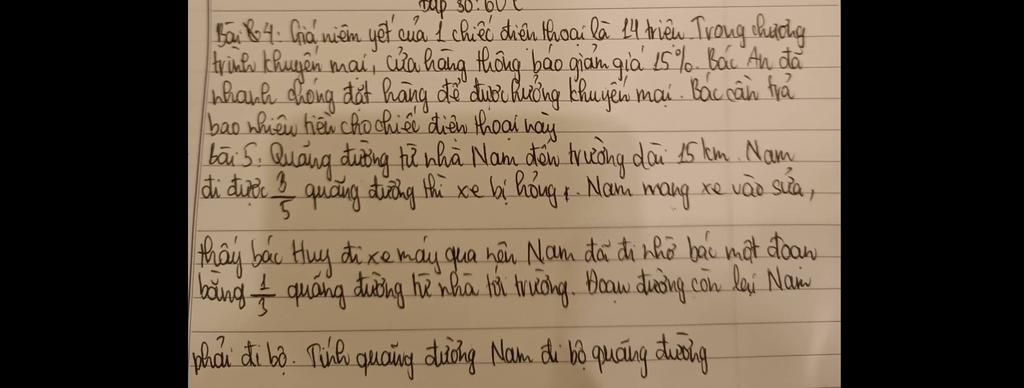 Bài 4: Giá niêm yết của 1 chiếc điện thoại là 14 triệu. Trong chương
trình khuyến mại, cửa hàng thông báo giảm giá 15%. Bác An đã
nhanh chóng đặt hàng để được hưởng khuyến mại. Bác cần trả
bao nhiêu tiền cho chiếc điện thoại này
bài 5. Quãng đường từ nhà Nam đến trường dài 15 km. Nam
đi được 3/5 quãng đường thì xe bị hỏng, Nam mang xe vào sửa,
thấy bác Huy đi xe máy qua nên Nam đã đi nhờ bác một đoạn
bằng 1/3 quãng đường từ nhà tới trường. Đoạn đường còn lại Nam
phải đi bộ. Tính quãng đường Nam đi bộ quãng đường